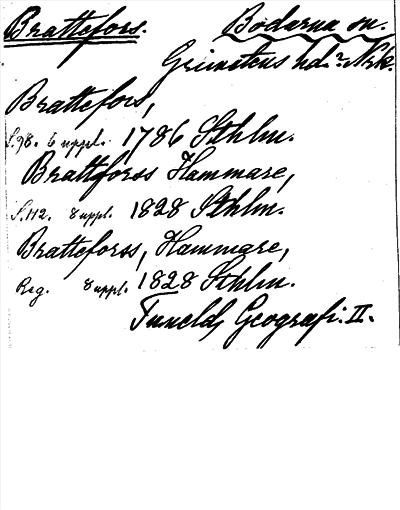 Brattefors. Bodarna sn.
Grimstens hd. Nrk.
Brattefors,
S. 98. 6 uppl. 1786 Sthlm.
Brattforss Hammare,
S. 112. 8 uppl. 1828 Sthlm.
Bratteforss, Hammare,
Reg. 8 uppl. 1828 Sthlm.
Tunelds Geografi. II.